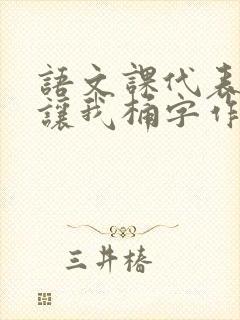 語文課代表
讓我桶字作
三井椿